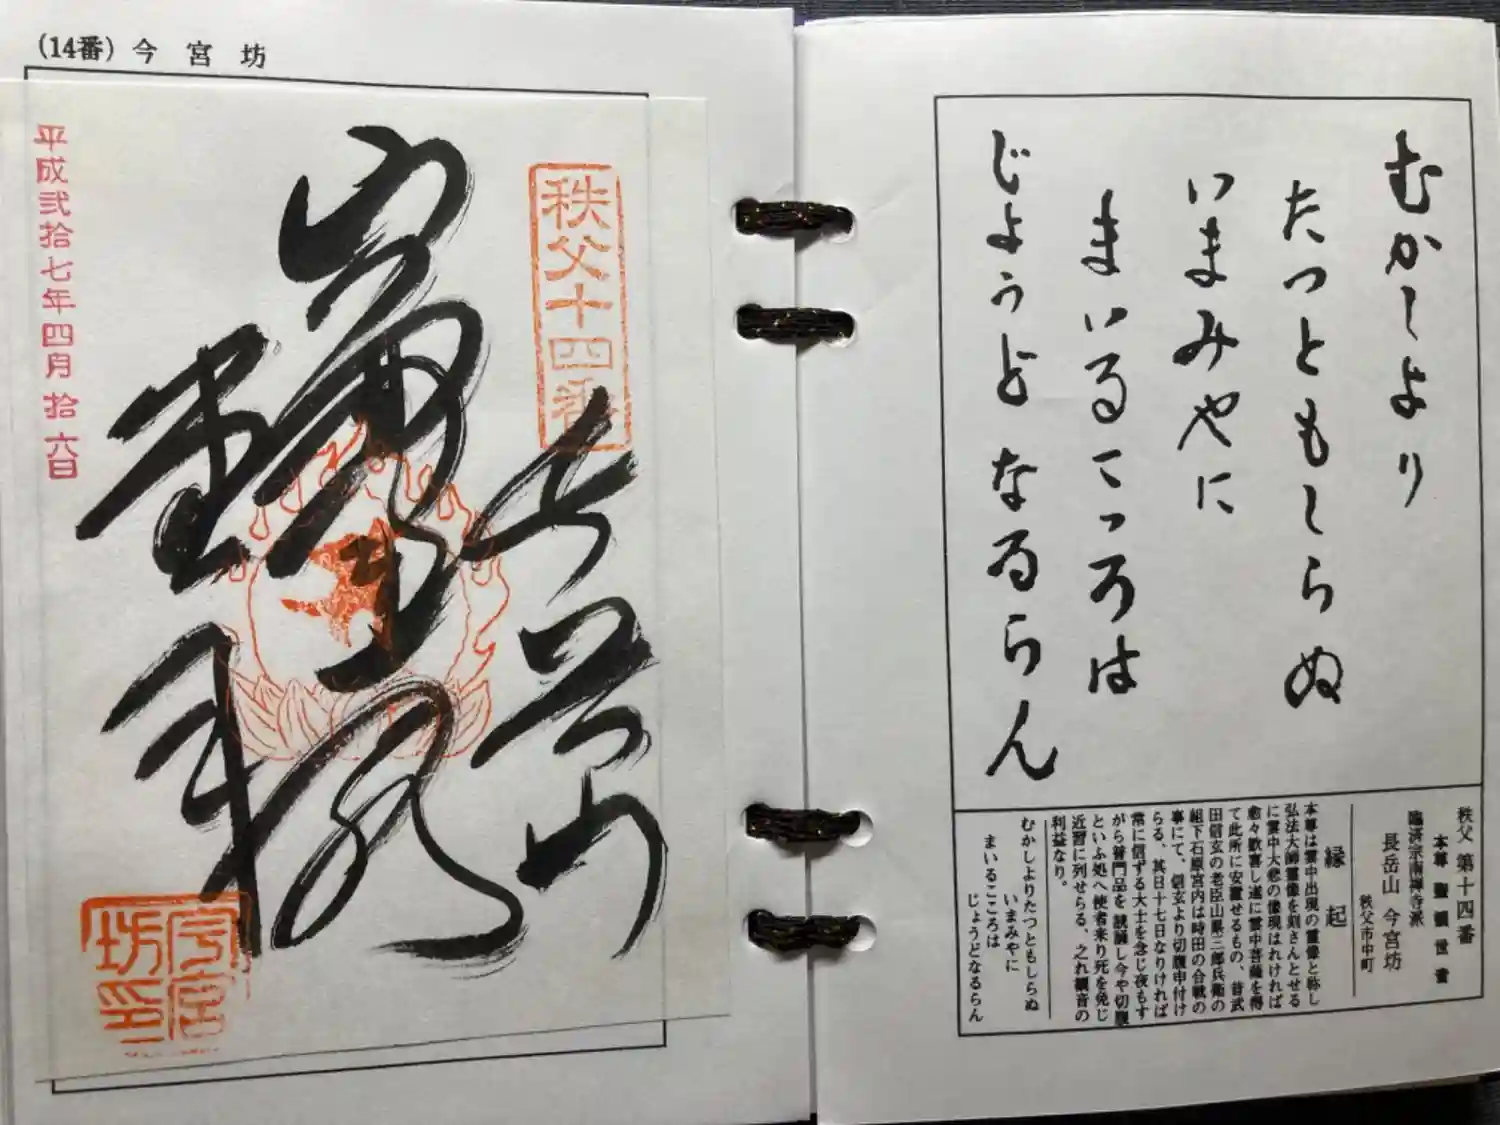 (14番) 今宮坊
秩父十四番
長岳山
平成弐拾七年四月拾六日
今宮坊印
むかしより
たつともしらぬ
いまみやに
まいるこゝろは
じょうどなるらん
秩父 第十四番
本尊 聖観世音
臨済宗南禅寺派
長岳山 今宮坊
秩父市中町
縁起
本尊は雲中出現の霊像と称し
弘法大師霊像を刻さんとせる
に雲中大悲の像現はれければ
愈々歓喜し遂に雲中菩薩を得
て此所に安置せるもの、昔武
田信玄の老臣山県三郎兵衛の
組下石原宮内は時田の合戦の
事にて、信玄より切腹申付け
らる、其日十七日なりければ
常に信ずる大士を念じ夜もす
がら普門品を読誦し今や切腹
といふ処へ使者来り死を免じ
近習に列せらる、之れ観音の
利益なり。
むかしよりたつともしらぬ
いまみやに
まいるこころは
じょうどなるらん